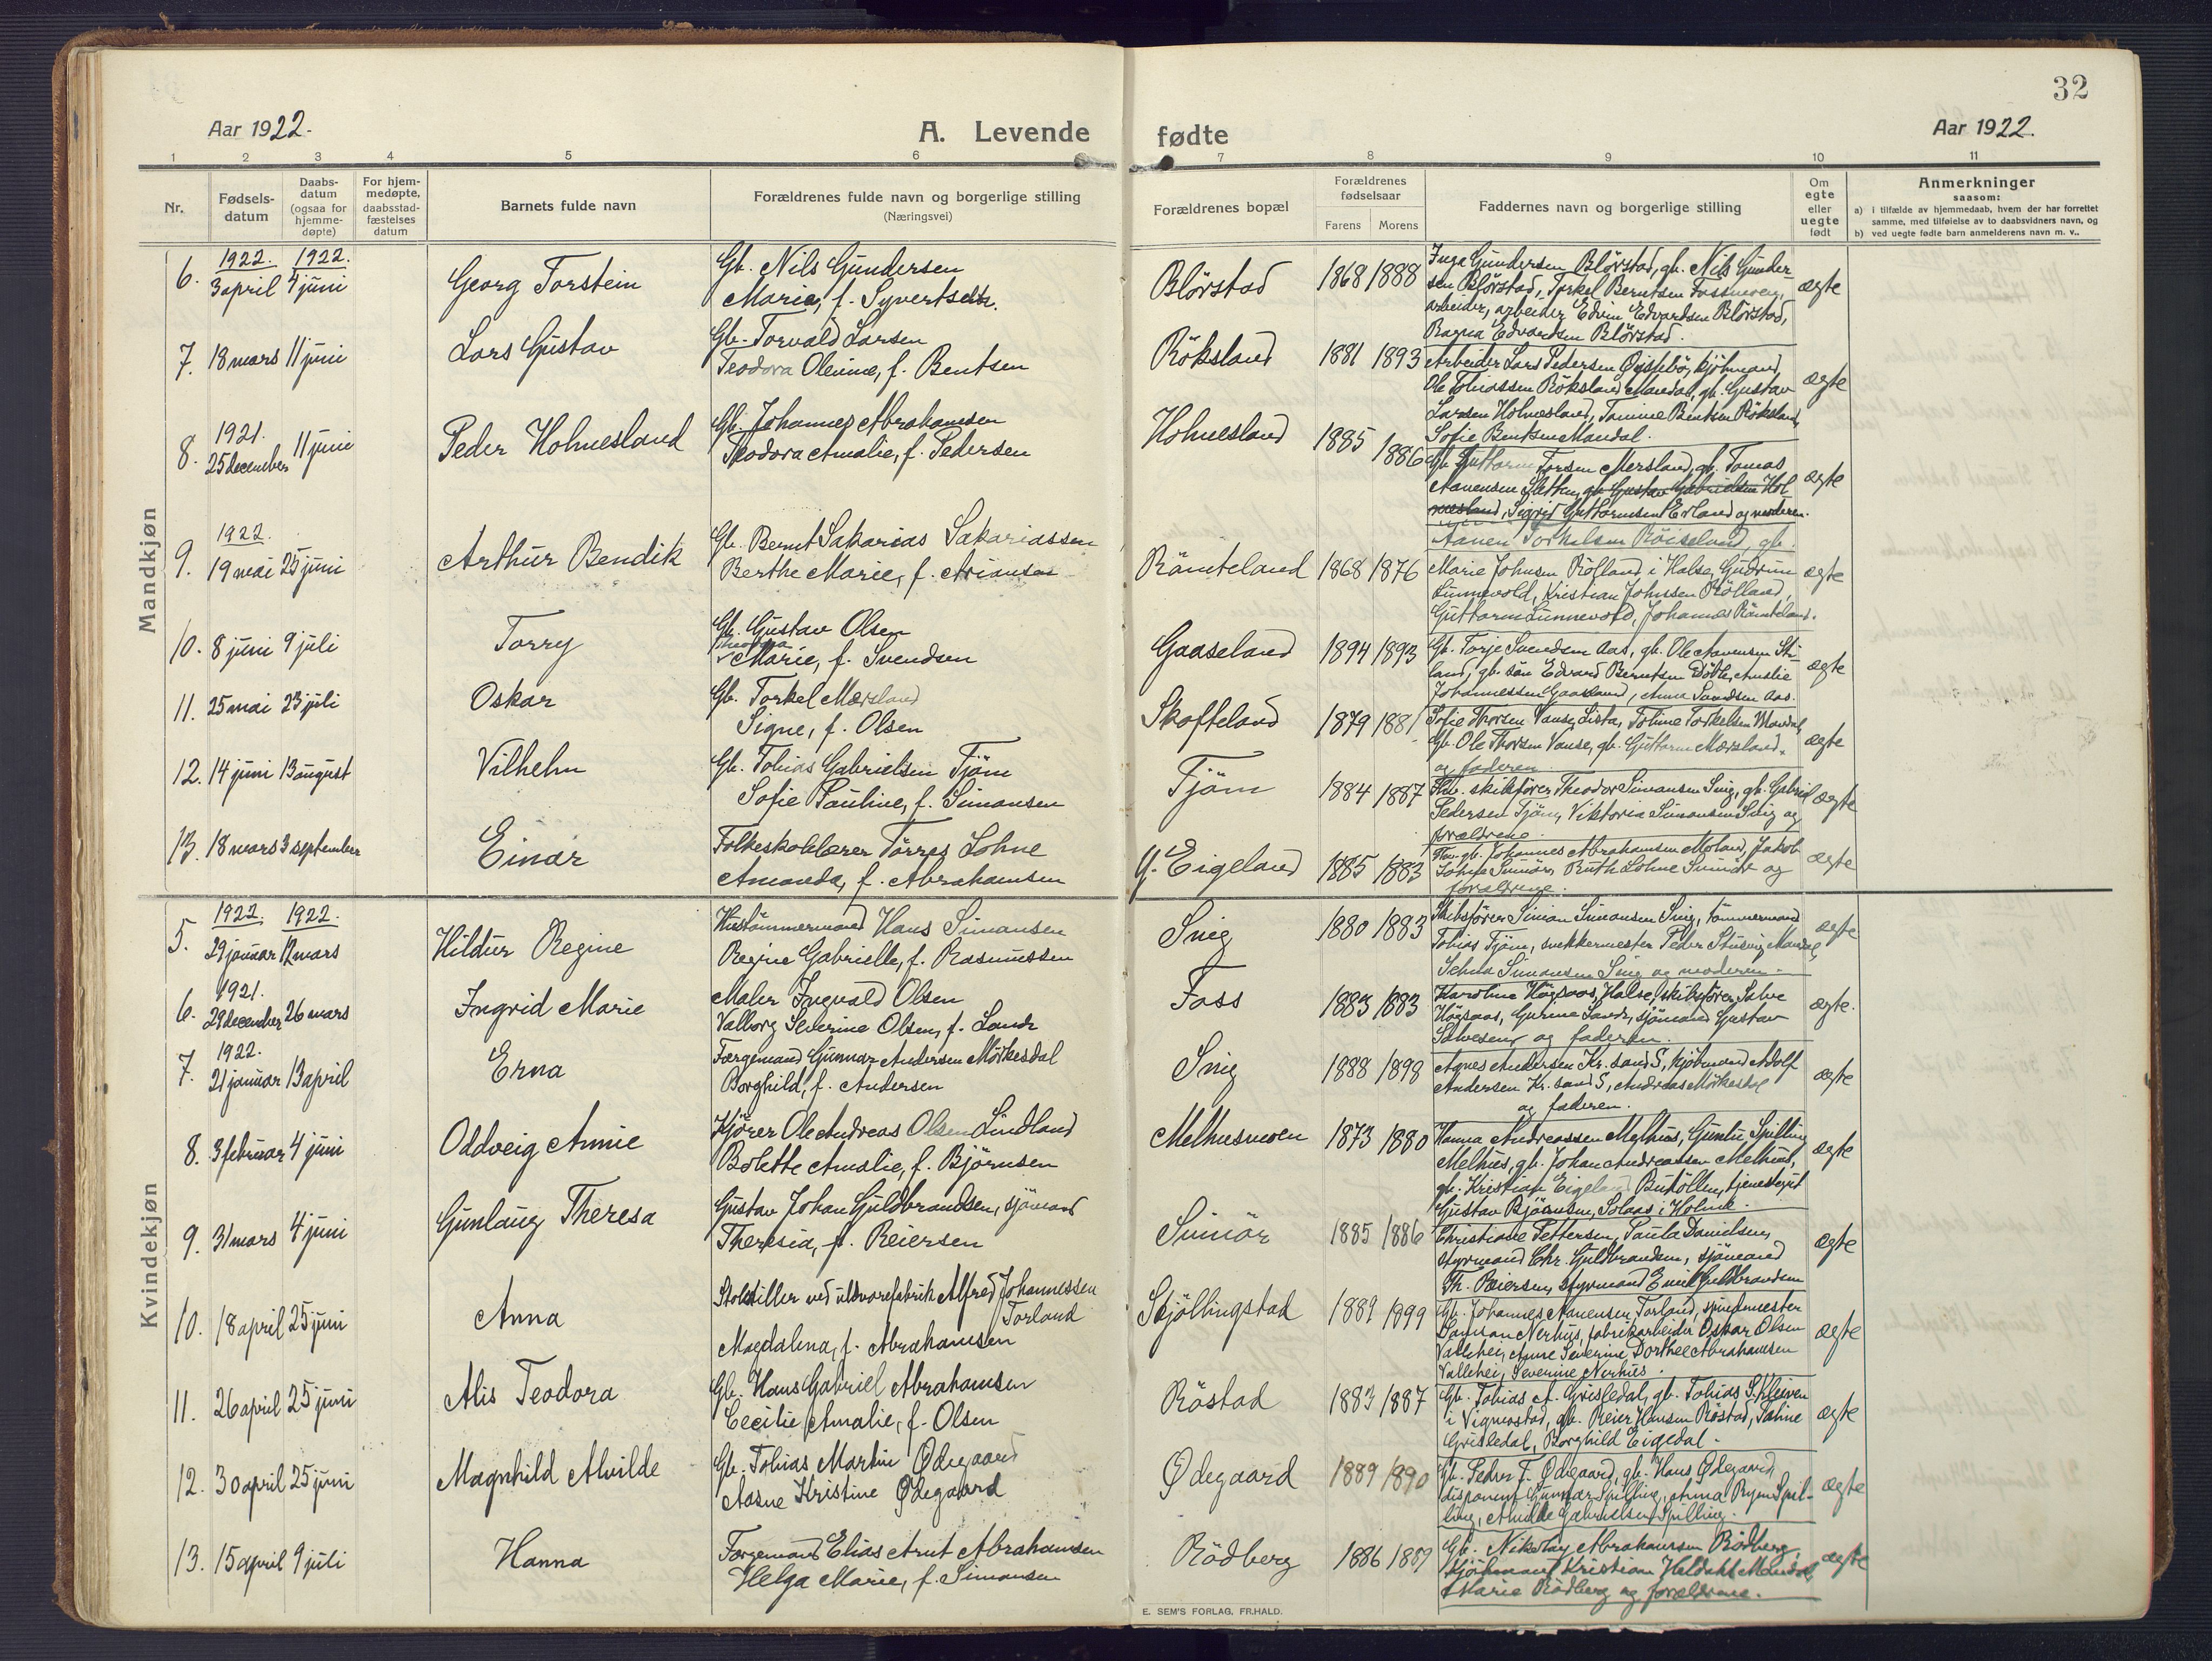 32
Aar 1922.
A. Levende fødte
Aar 1922.
1 2 3 4 5 6 7 8 9 10 11
Nr.
Fødsels-
datum
Daabs-
datum
(ogsaa for
hjemme-
døpte)
For hjem-
medøpte,
daabsstad-
fæstelses
datum
Barnets fulde navn
Forældrenes fulde navn og borgerlige stilling
(Næringsvei)
Forældrenes bopæl
Forældrenes
fødselsaar
Farens Morens
Faddernes navn og borgerlige stilling
Om
egte
eller
uegte
født
Anmerkninger
saasom:
a) i tilfælde av hjemmedaab, hvem der har forrettet
samme, med tilføielse av to daabsvidners navn, og
b) ved uegte fødte barn anmelderens navn m. v..
Mandkjøn
1922. 1922.
6. 3 april 4 juni Georg Torstein
Gb. Nils Gundersen
Marie, f. Syvertsen.
Blörstad 1868 1888
Inga Gundersen Blörstad, gb. Nils Gunder-
sen Blörstad, Torkel Berntsen Fossmoen,
arbeider, arbeider Edvin Edvardsen Blörstad,
Ragna Edvardsen Blörstad.
ægte
7. 18 mars 11 juni Lars Gustav
Gb. Torvald Larsen
Teodora Olevine, f. Bentsen
Röksland 1881 1893
Arbeider Lars Pedersen Öislebö, kjöbmand
Ole Tobiassen Röksland Mandal, gb. Gustav
Larsen Holmesland, Tomine Bentsen Röksland,
Sofie Bentsen Mandal.
ægte
1921.
8. 25 december 11 juni Peder Holmesland
Gb. Johannes Abrahamsen
Teodora Amalie, f. Pedersen
Holmesland 1885 1886
Gb. Guttorm Torsen Mersland, gb. Tomas
Aanensen Sletten, gb. Gustav Gabrielsen Hol-
mesland, Sigrid Guttormsen Erland og moderen.
ægte
1922.
9. 19 mai 25 juni Arthur Bendik
Gb. Bernt Sakarias Sakariassen
Berthe Marie, f. Ariansen
Römteland 1868 1876
Aanen Torkelsen Röiseland, gb.
Marie Johnsen Rölland i Halse, Gudrun
Lunnevold, Kristian Johnsen Rölland,
Guttorm Lunnevold, Johannes Römteland.
ægte
10. 8 juni 9 juli Torry
Gb. Gustav Olsen
Marie, f. Svendsen
Gaaseland 1894 1893
Gb. Torje Svendsen Aas, gb. Ole Aanensen Sti-
land, gb. sön Edvard Berntsen Döble, Amalie
Johannessen Gaaseland, Anna Svendsen Aas.
ægte
11. 25 mai 23 juli Oskar
Gb. Torkel Mærsland
Signe, f. Olsen
Skofteland 1879 1881
Sofie Thorsen Vanse, Lista, Toline Torkelsen Mandal,
Gb. Ole Thorsen Vanse, gb. Guttorm Mærsland,
og faderen.
ægte
12. 14 juni 13 august Vilhelm
Gb. Tobias Gabrielsen Tjöm
Sofie Pauline, f. Simonsen
Tjöm 1884 1887
skibsförer Theodor Simonsen Snig, gb. Gabriel
Pedersen Tjöm, Viktoria Simonsen Snig og
forældrene.
ægte
13. 18 mars 3 september Einar
Folkeskolelærer Törres Lohne
Amanda, f. Abrahamsen
Y. Eigeland 1885 1883
gb. Johannes Abrahamsen Moland, Jakob
Lohne Sunnör, Ruth Lohne Sunnör og
forældrene.
ægte
Kvindekjøn
1922. 1922.
5. 29 januar 12 mars Hildur Regine
Hustömmermand Hans Simonsen
Regine Gabrielle, f. Rasmussen
Snig 1880 1883
Skibsförer Simon Simonsen Snig, tömmermand
Tobias Tjöm, snekkermester Peder Snig Mandal
Selma Simonsen Snig og moderen.
ægte
1921.
6. 29 december 26 mars Ingrid Marie
Maler Ingvald Olsen
Valborg Severine Olsen, f. Lande
Foss 1883 1883
Karoline Högsaas, Halse, skibsförer Salve
Högsaas, Gurine Lande, sjömand Gustav
Salvesen, og faderen.
ægte.
1922.
7. 21 januar 13 april Erna
Færgemand Gunnar Andersen Mörkesdal
Borghild, f. Andersen
Snig 1888 1898
Agnes Andersen Kr. sand S, kjöbmand Adolf
Andersen Kr. sand S, Andreas Mörkesdal
og faderen.
ægte
8. 3 februar 4 juni Oddveig Annie
Kjörer Ole Andreas Olsen Lindland
Bolette Amalie, f. Björnsen
Melhusmoen 1873 1880
Hanna Andreassen Melhus, Gunlu Spilling
Melhus, gb. Johan Andreassen Melhus,
gb. Kristian Eigeland Buhöllen, tjenestegut
Gustav Björnsen, Solaas i Holme.
ægte
9. 31 mars 4 juni Gunlaug Theresa
Gustav Johan Guldbrandsen, sjömand
Theresia, f. Reiersen
Sunnör 1885 1886
Christiane Pettersen, Paula Danielsen,
styrmand Chr. Guldbrandsen, sjömand
Th. Reiersen, styrmand Emil Guldbrandsen
ægte
10. 18 april 25 juni Anna
Stolstiller ved uldvarefabrik Alfred Johannessen
Torland
Magdalena, f. Abrahamsen
Skjöllingstad 1889 1899
Gb. Johannes Aanensen Torland, spindmester
Samson Nerhus, fabrikarbeider Oskar Olsen
Vallehei, Anne Severine Dorthee Abrahamsen
Vallehei, Severine Nerhus.
ægte
11. 26 april 25 juni Alis Teodora
Gb. Hans Gabriel Abrahamsen
Cecilie Amalie, f. Olsen
Röstad 1883 1887
Gb. Tobias A. Grisledal, gb. Tobias S. Kleiven
i Vigmostad, gb. Reier Hansen Röstad, Saline
Grisledal, Borghild Eigedal.
ægte
12. 30 april 25 juni Magnhild Alvilde
Gb. Tobias Martin Ødegaard
Aasne Kristine Ødegaard
Ødegaard 1889 1890
Gb. Peder T. Ødegaard, gb. Hans Ødegaard,
disponent Gunnar Spilling, Anna Spil-
ling, Alvilde Gabrielsen Spilling.
ægte
13. 15 april 9 juli Hanna
Færgemand Elias Arnt Abrahamsen
Helga Marie, f. Simonsen
Rödberg 1886 1889
Gb. Nikolay Abrahamsen Rödberg,
Kjöbmand Kristian Heldahl Mandal,
Marie Rödberg og forældrene.
ægte
E. SEM'S FORLAG, FR.HALD.